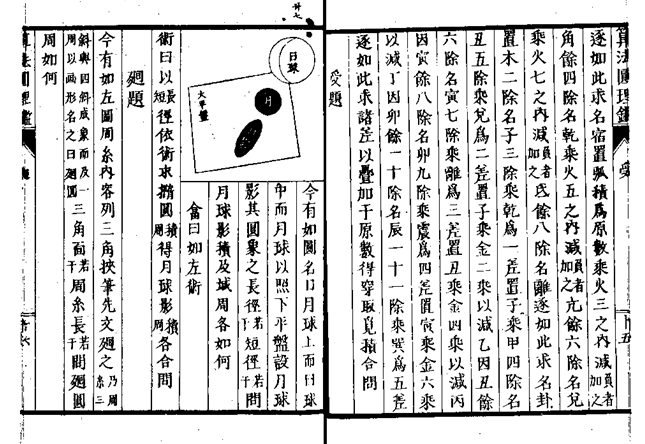 逐如此求名宿置弧積爲原數乘火三之內減負者加之
角餘四除名乾乘火五之內減負者加之亢餘六除名兌
乘火七之內減負者加之氐餘八除名離逐如此求名卦
置木二除名子三除乘乾爲一差置子乘甲四除名
丑五除乘兌爲二差置子乘金二乘以減乙因丑餘
六除名寅七除乘離爲三差置丑乘金四乘以減丙
因寅餘八除名卯九除乘震爲四差置寅乘金六乘
以減丁因卯餘一十除名辰一十一除乘巽爲五差
逐如此求諸差以疊加于原數得穿取覓積合問
受題
今有如圖名日月球上而日球
中而月球以照下平盤設月球
影其圓象之長徑若干短徑若干問
月球影積及城周各如何
答曰如左術
術曰以長短徑依術求撱圓積周得月球影積周各合問
廻題
今有如左圖周糸內容列三角挾筆先文廻之乃周糸三
斜與四斜成象而及一周以画形名之曰廻圓三角面若干周糸長若干問廻圓
周如何
日球
月
太平盤
算法圓理鑑